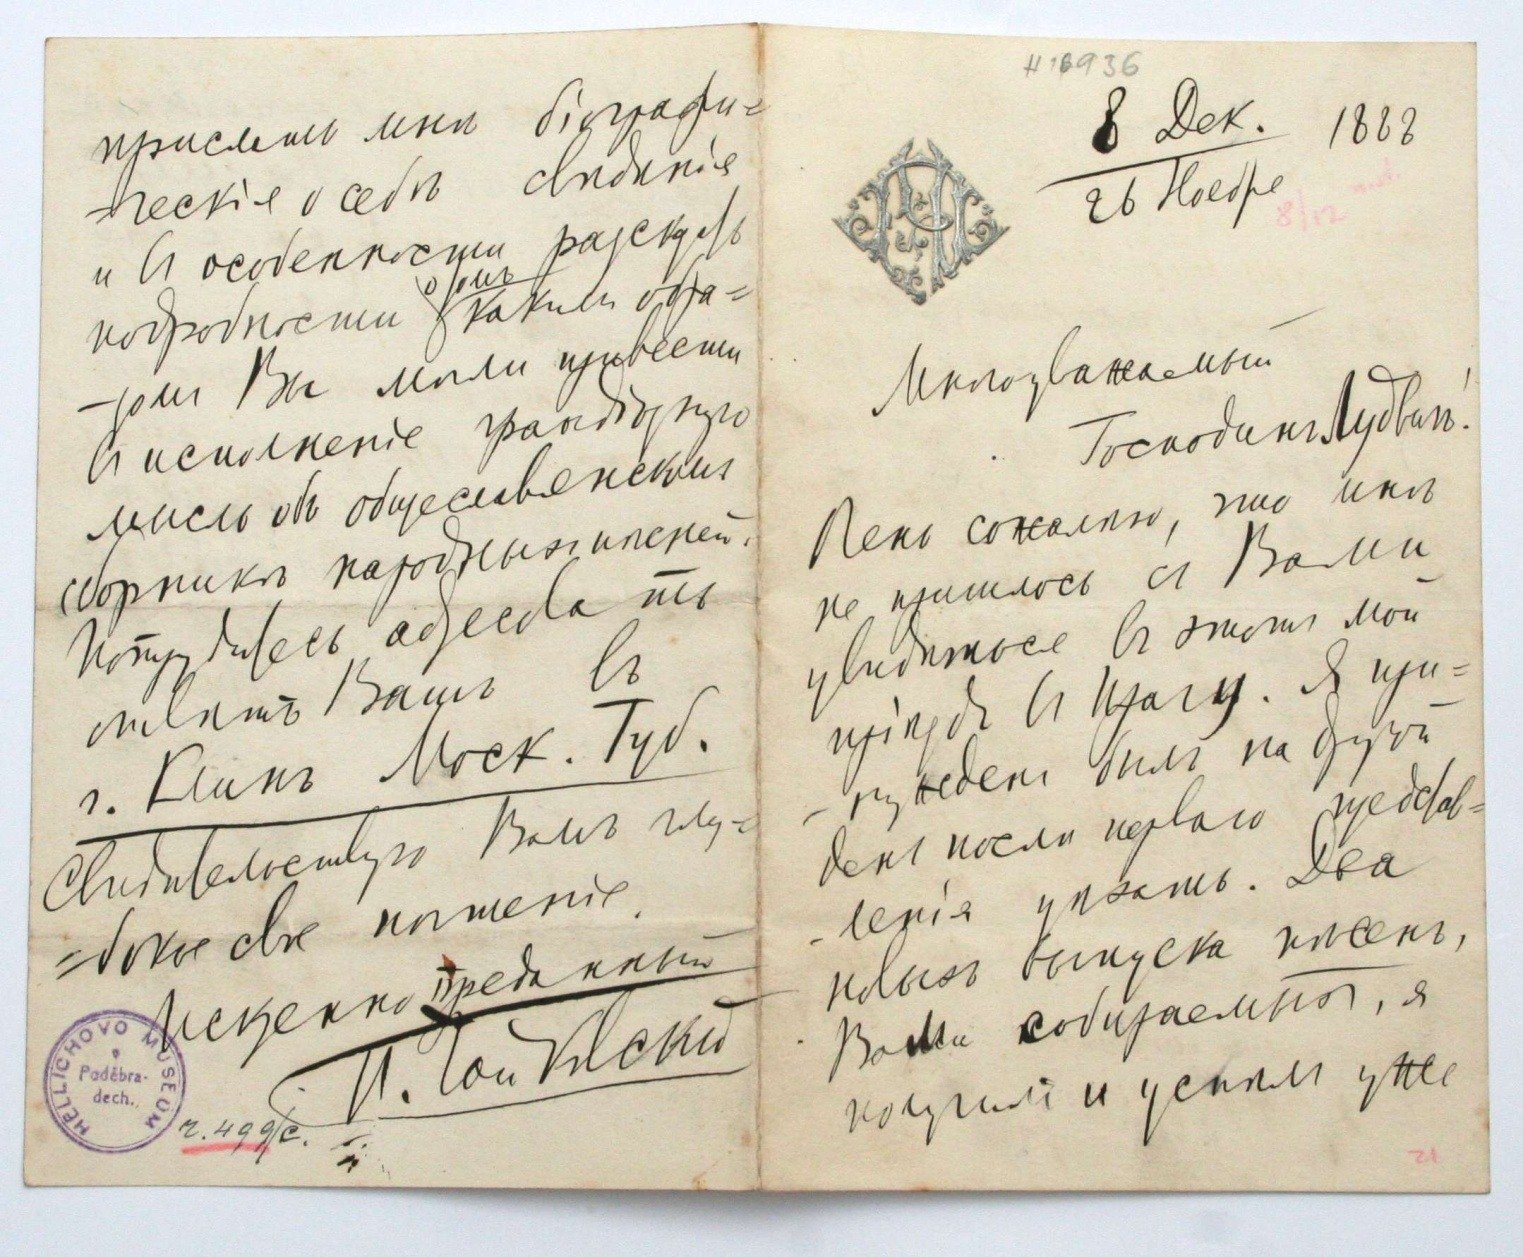 8 Дек. 1888
26 Ноября
Многоуважаемый
Господинъ Лудвикъ!
Очень сожалѣю, что мнѣ
не пришлось съ Вами
увидѣться въ этотъ мой
пріѣздъ въ Прагу. Я при=
-нужденъ былъ на другой
день послѣ перваго представ=
-ленія уѣхать. Два
новыхъ выпуска пѣсенъ,
Вами собираемыхъ, я
получилъ и успѣлъ уже
прислать мнѣ біографи=
-ческія о себѣ свѣдѣнія
и въ особенности разсказать
подробности о томъ какимъ обра=
-зомъ Вы могли привести
въ исполненіе грандіозную
мысль объ общеславянскомъ
сборникѣ народныхъ пѣсней.
Потрудитесь адресовать
отвѣтъ Вашъ въ
г. Клинъ Моск. Губ.
Свидѣтельствую Вамъ глу=
=бокое свое почтеніе.
Искренно преданный
П. Чайковскій
HELLICHOVO MUSEUM
Poděbra-
dech.
21